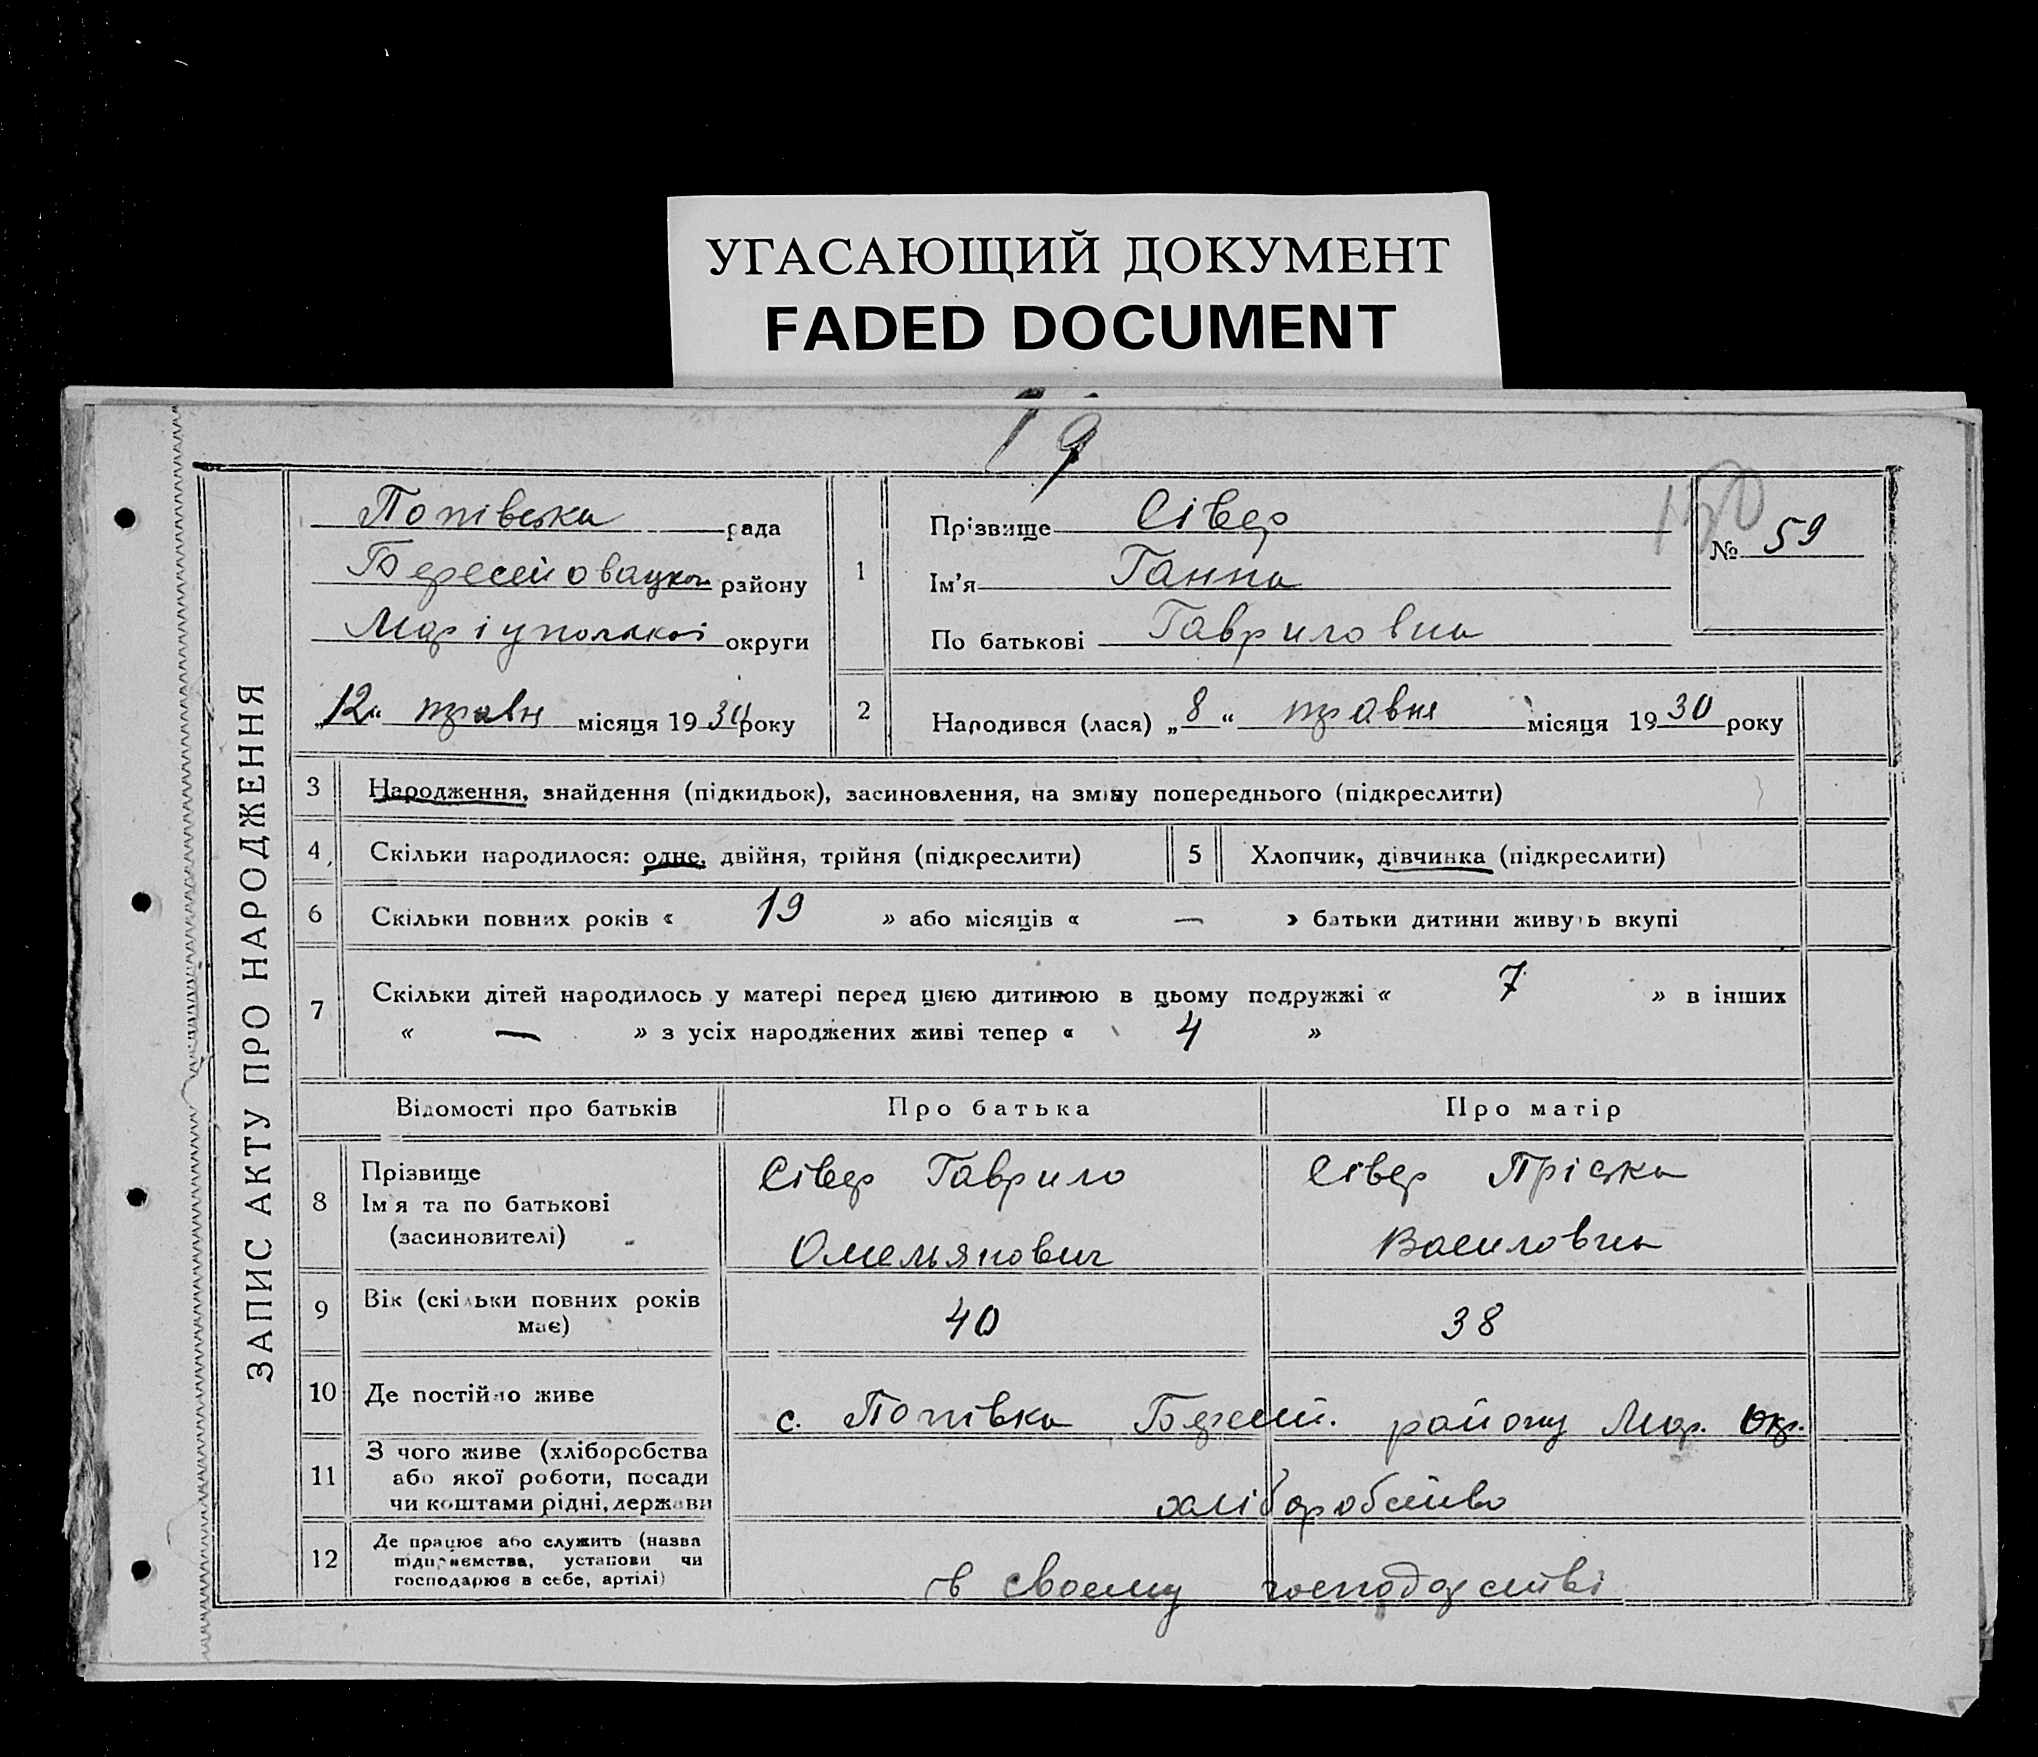 УГАСАЮЩИЙ ДОКУМЕНТ
FADED DOCUMENT
19
150
ЗАПИС АКТУ ПРО НАРОДЖЕННЯ
Попівська рада
Берестовацького району
Маріупольської округи
„12“ травня місяця 1930 року
1
Прізвище Сівер
Ім'я Ганна
По батькові Гавриловна
№ 59
2
Народився (лася) „8“ травня місяця 1930 року
3 Народження, знайдення (підкидьок), засиновлення, на зміну попереднього (підкреслити)
4 Скільки народилося: одне, двійня, трійня (підкреслити) 5 Хлопчик, дівчинка (підкреслити)
6 Скільки повних років « 19 » або місяців « — » батьки дитини живуть вкупі
7 Скільки дітей народилось у матері перед цією дитиною в цьому подружжі « 7 » в інших
« — » з усіх народжених живі тепер « 4 »
Відомості про батьків Про батька Про матір
8 Прізвище
Ім'я та по батькові
(засиновителі)
Сівер Гаврило
Омельянович
Сівер Пріська
Василовна
9 Вік (скільки повних років
має)
40 38
10 Де постійно живе с. Попівка Берест. району Мар. Окр.
11 З чого живе (хліборобства
або якої роботи, посади
чи коштами рідні, держави
хліборобство
12 Де працює або служить (назва
підприємства, установи чи
господарює в себе, артілі)
в своему господарстві